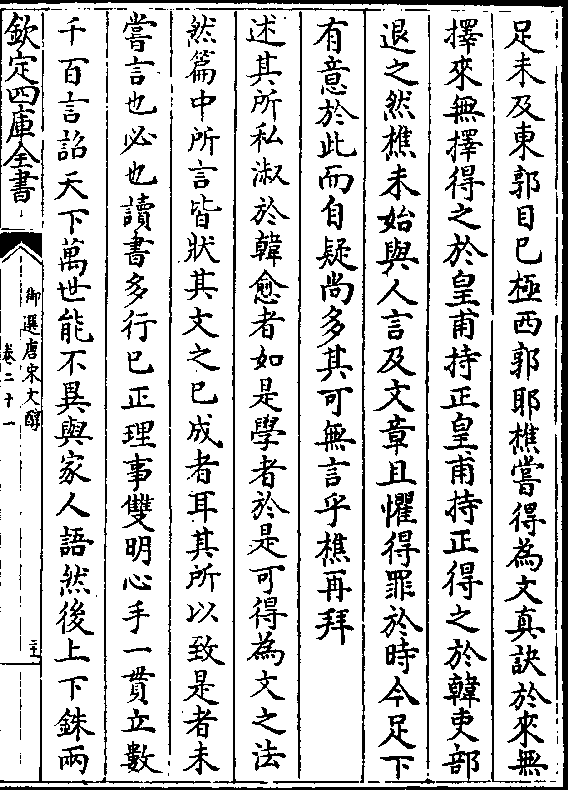 足未及東郭目已極西郭耶樵嘗得為文真訣於來無
擇來無擇得之於皇甫持正皇甫持正得之於韓吏部
退之然樵未始與人言及文章且懼得罪於時今足下
有意於此而自疑尚多其可無言乎樵再拜
述其所私淑於韓愈者如是學者於是可得為文之法
然篇中所言皆狀其文之已成者耳其所以致是者未
嘗言也必也讀書多行已正理事雙明心手一貫立數
千百言詔天下萬世能不異與家人語然後上下銖兩
欽定四庫全書
御選唐宋文醇
卷二十一